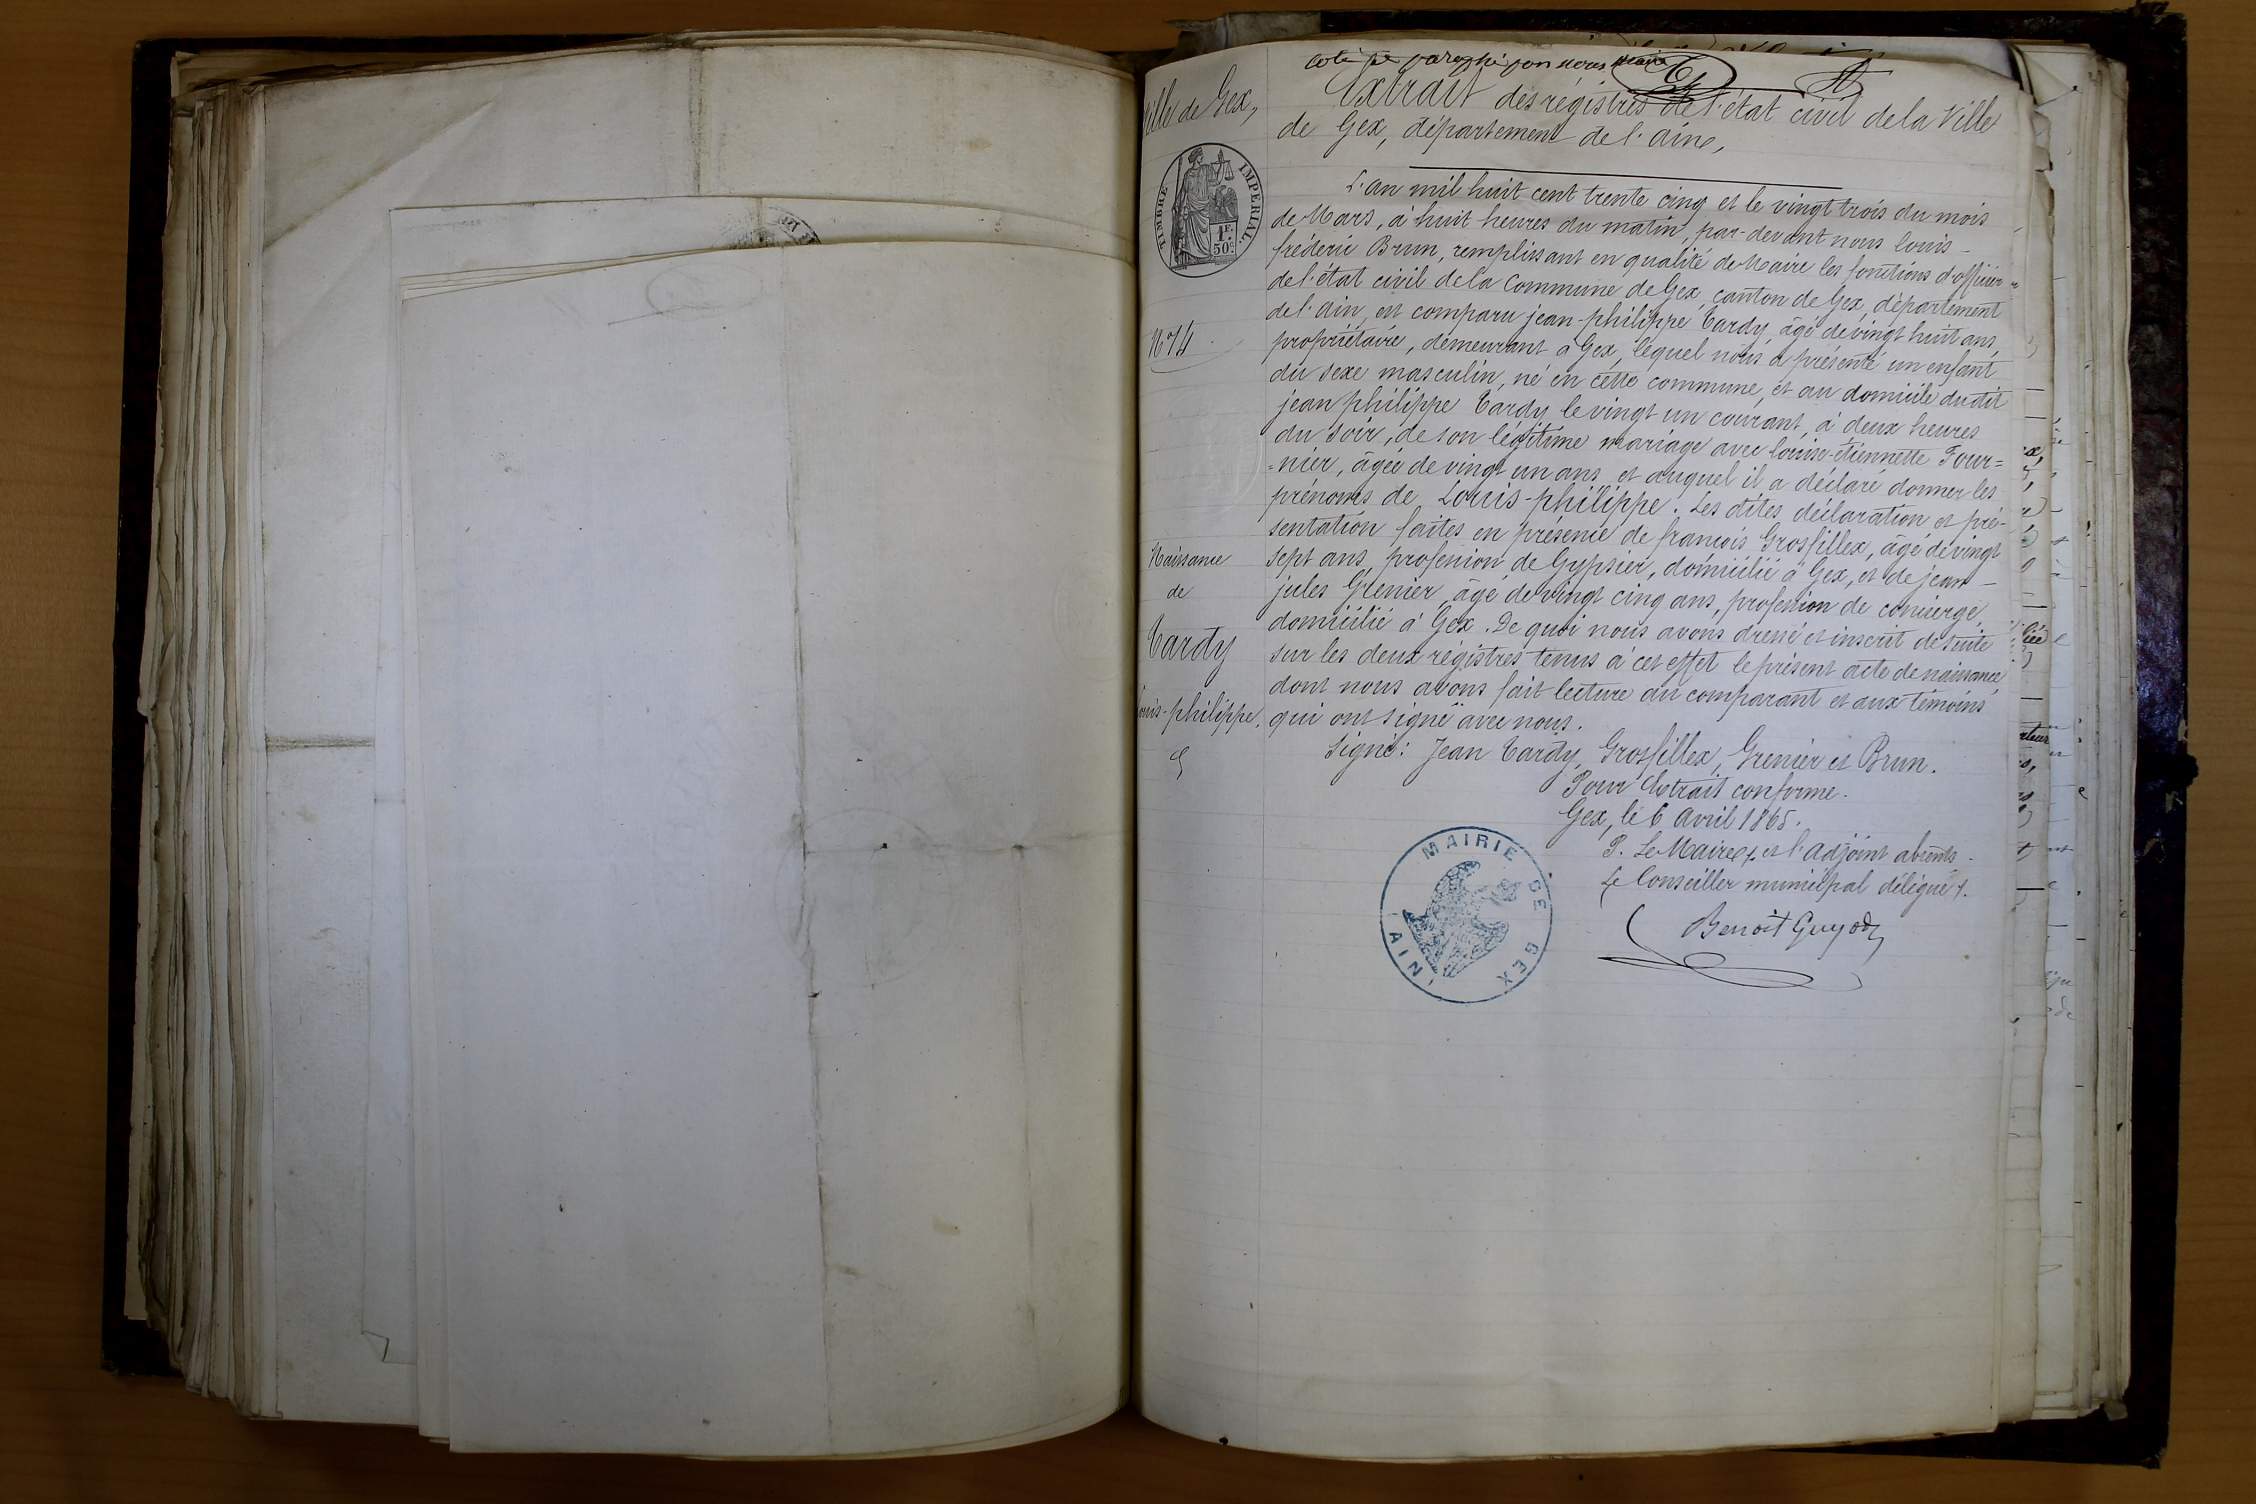 Coté et paraphé par nous maire
Ville de Gex,
Extrait des régistres de l'état civil de la Ville
de Gex, département de l'ain,
TIMBRE IMPERIAL.
1F.
50c.
L'an mil huit cent trente cinq et le vingt trois du mois
de Mars, à huit heures du matin, par-devant nous louis-
fréderic Brun, remplissant en qualité de Maire les fonctions d'officier
de l'état civil de la Commune de Gex, canton de Gex, département
de l'ain, est comparu jean-philippe Tardy, âgé de vingt huit ans,
N° 14
propriétaire, demeurant à Gex, lequel nous a présenté un enfant
du sexe masculin, né en cette commune, et au domicile dudit
jean philippe Tardy le vingt un courant, à deux heures
du soir, de son légitime mariage avec louise-étiennette Four=
=nier, âgée de vingt un ans, et auquel il a déclaré donner les
prénoms de Louis-philippe. Les dites déclaration et pré-
sentation faites en présence de françois Grosfillex, âgé de vingt
Naissance
sept ans, profession de Gypsier, domicilié à Gex, et de jean-
de
jules Grenier, âgé de vingt cinq ans, profession de concierge,
Tardy
domicilié à Gex. De quoi nous avons dressé et inscrit de suite
sur les deux registres tenus à cet effet le présent acte de naissance
Louis-philippe.
dont nous avons fait lecture au comparant et aux témoins
qui ont signé avec nous.
Signé: Jean Tardy, Grosfillex, Grenier et Brun.
Pour Extrait conforme.
Gex, le 6 avril 1865.
P. Le Maire et l'adjoint absents.
Le Conseiller municipal délégué.
Benoit Guyod
MAIRIE DE GEX
(AIN)